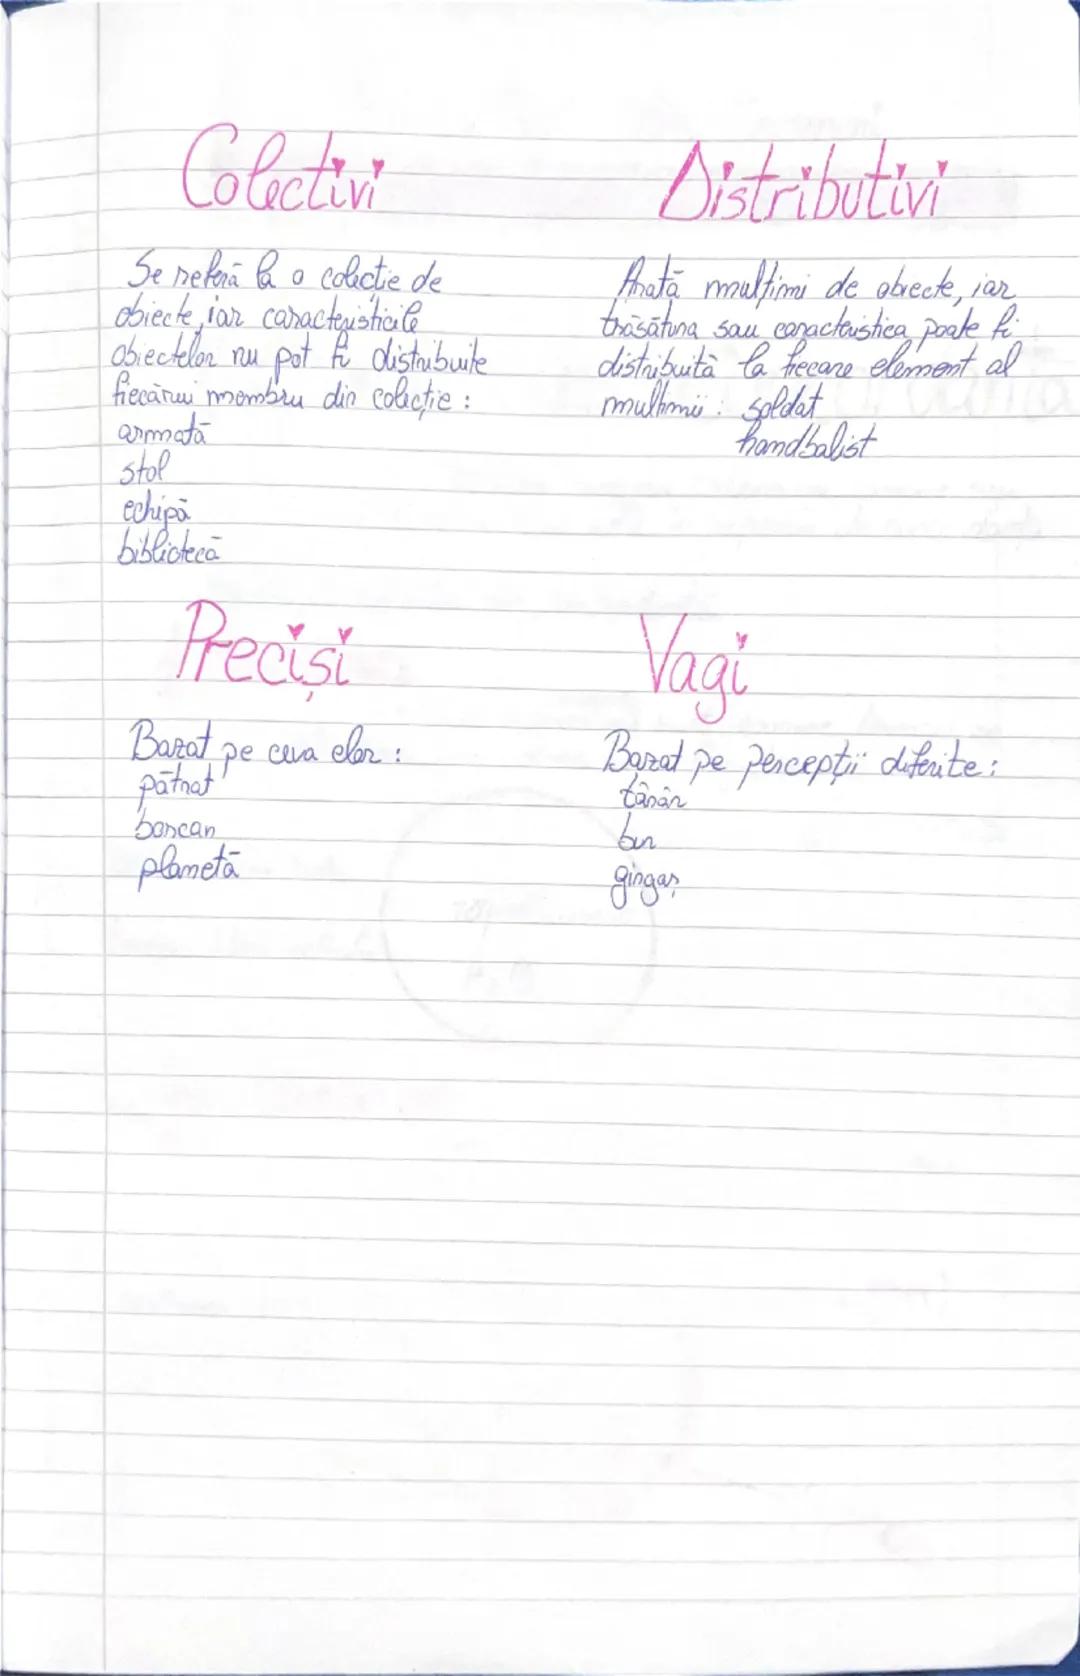 Colectivi
Se referă la o colecție de
obiecte, iar caracteristicile
obiectelor nu pot fi distribuite
fiecărui membru din colecție :
armată
stol
echipă
bibliotecă
Distributivi
Arată mulțimi de obiecte, iar
trăsătura sau caracteristica poate fi
distribuită la fiecare element al
mulțimii : soldat
handbalist
Preciși
Bazat pe ceva clar :
pătrat
borcan
planetă
Vagi
Bazat pe percepții diferite :
tânăr
bun
gingaș